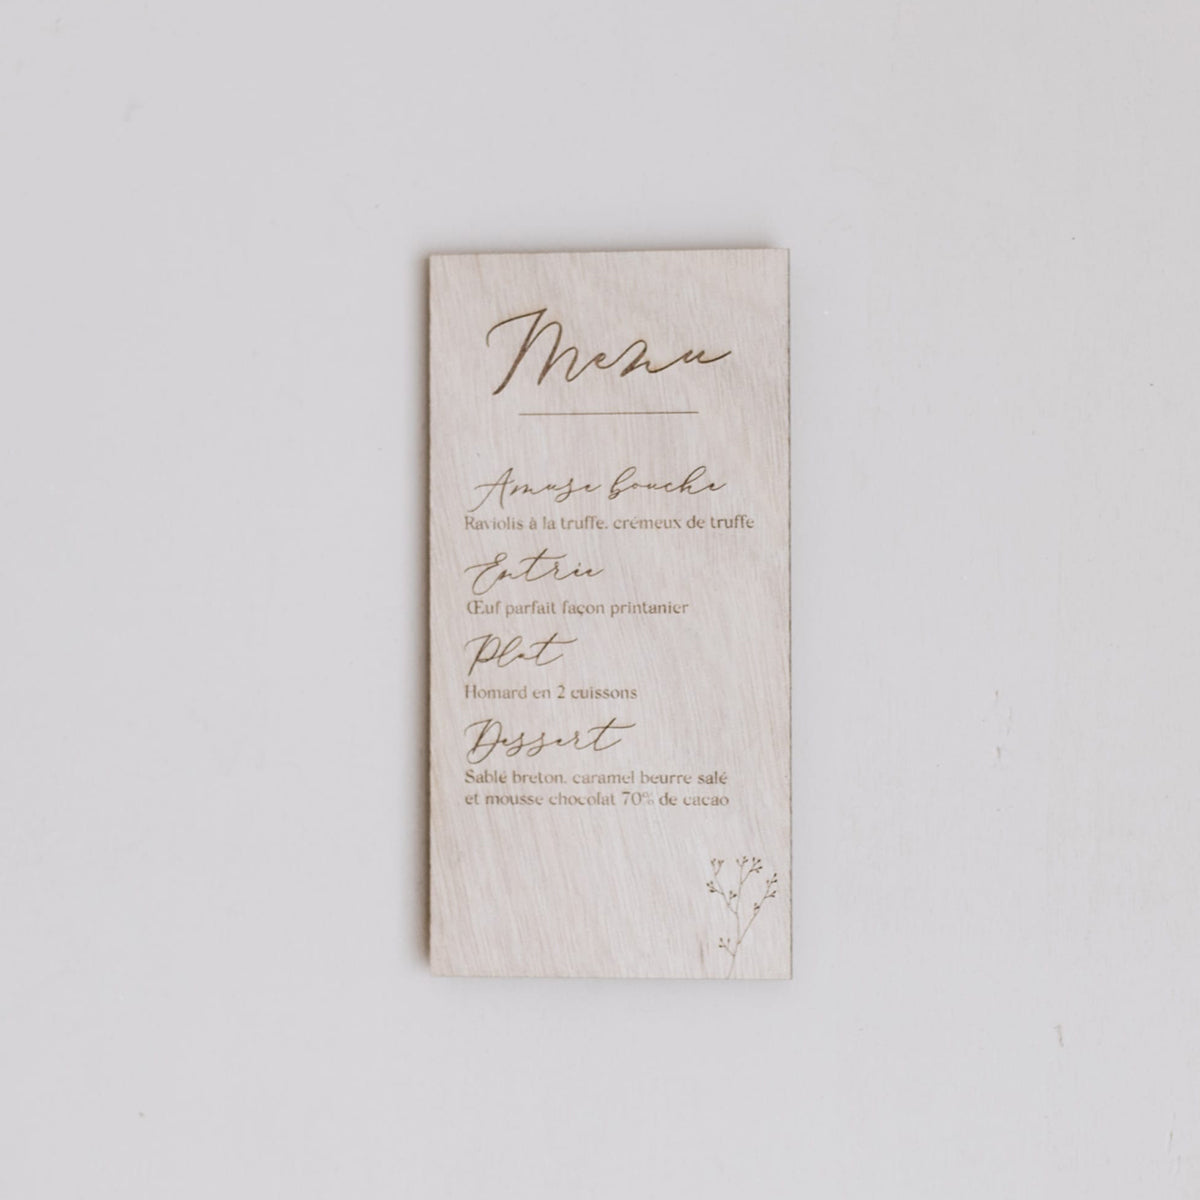 Menu
Amuse bouche
Raviolis à la truffe, crémeux de truffe
Entrée
Œuf parfait façon printanier
Plat
Homard en 2 cuissons
Dessert
Sablé breton, caramel beurre salé
et mousse chocolat 70% de cacao